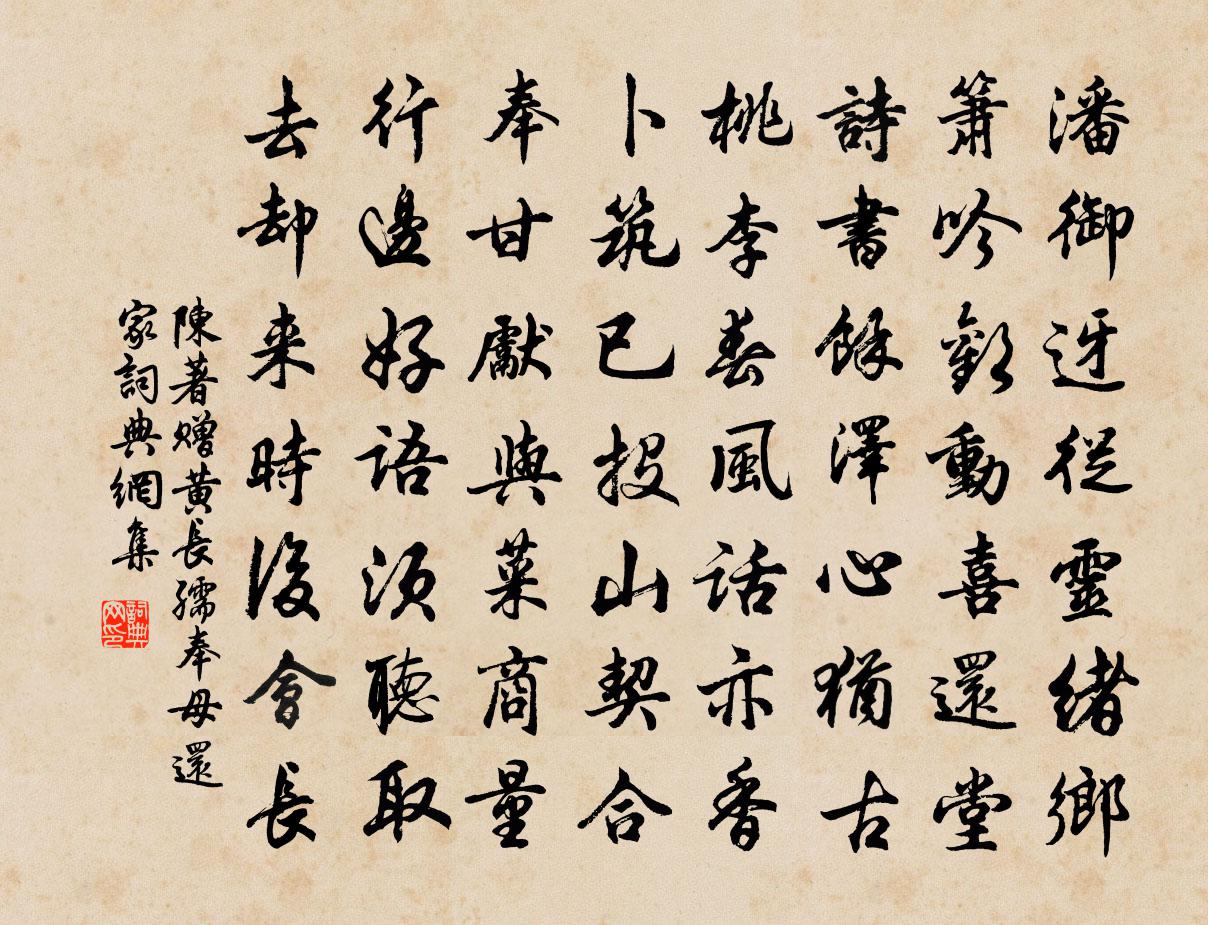 潘御迓從靈緒鄉
簫吟歡動喜還堂
詩書餘澤心猶古
桃李春風話亦香
卜筑已投山契合
奉甘獻與菜商量
行邊好語須聽取
去却来時後會長
陳著赠黄長孺奉母還
家詞典網集
詞典网印